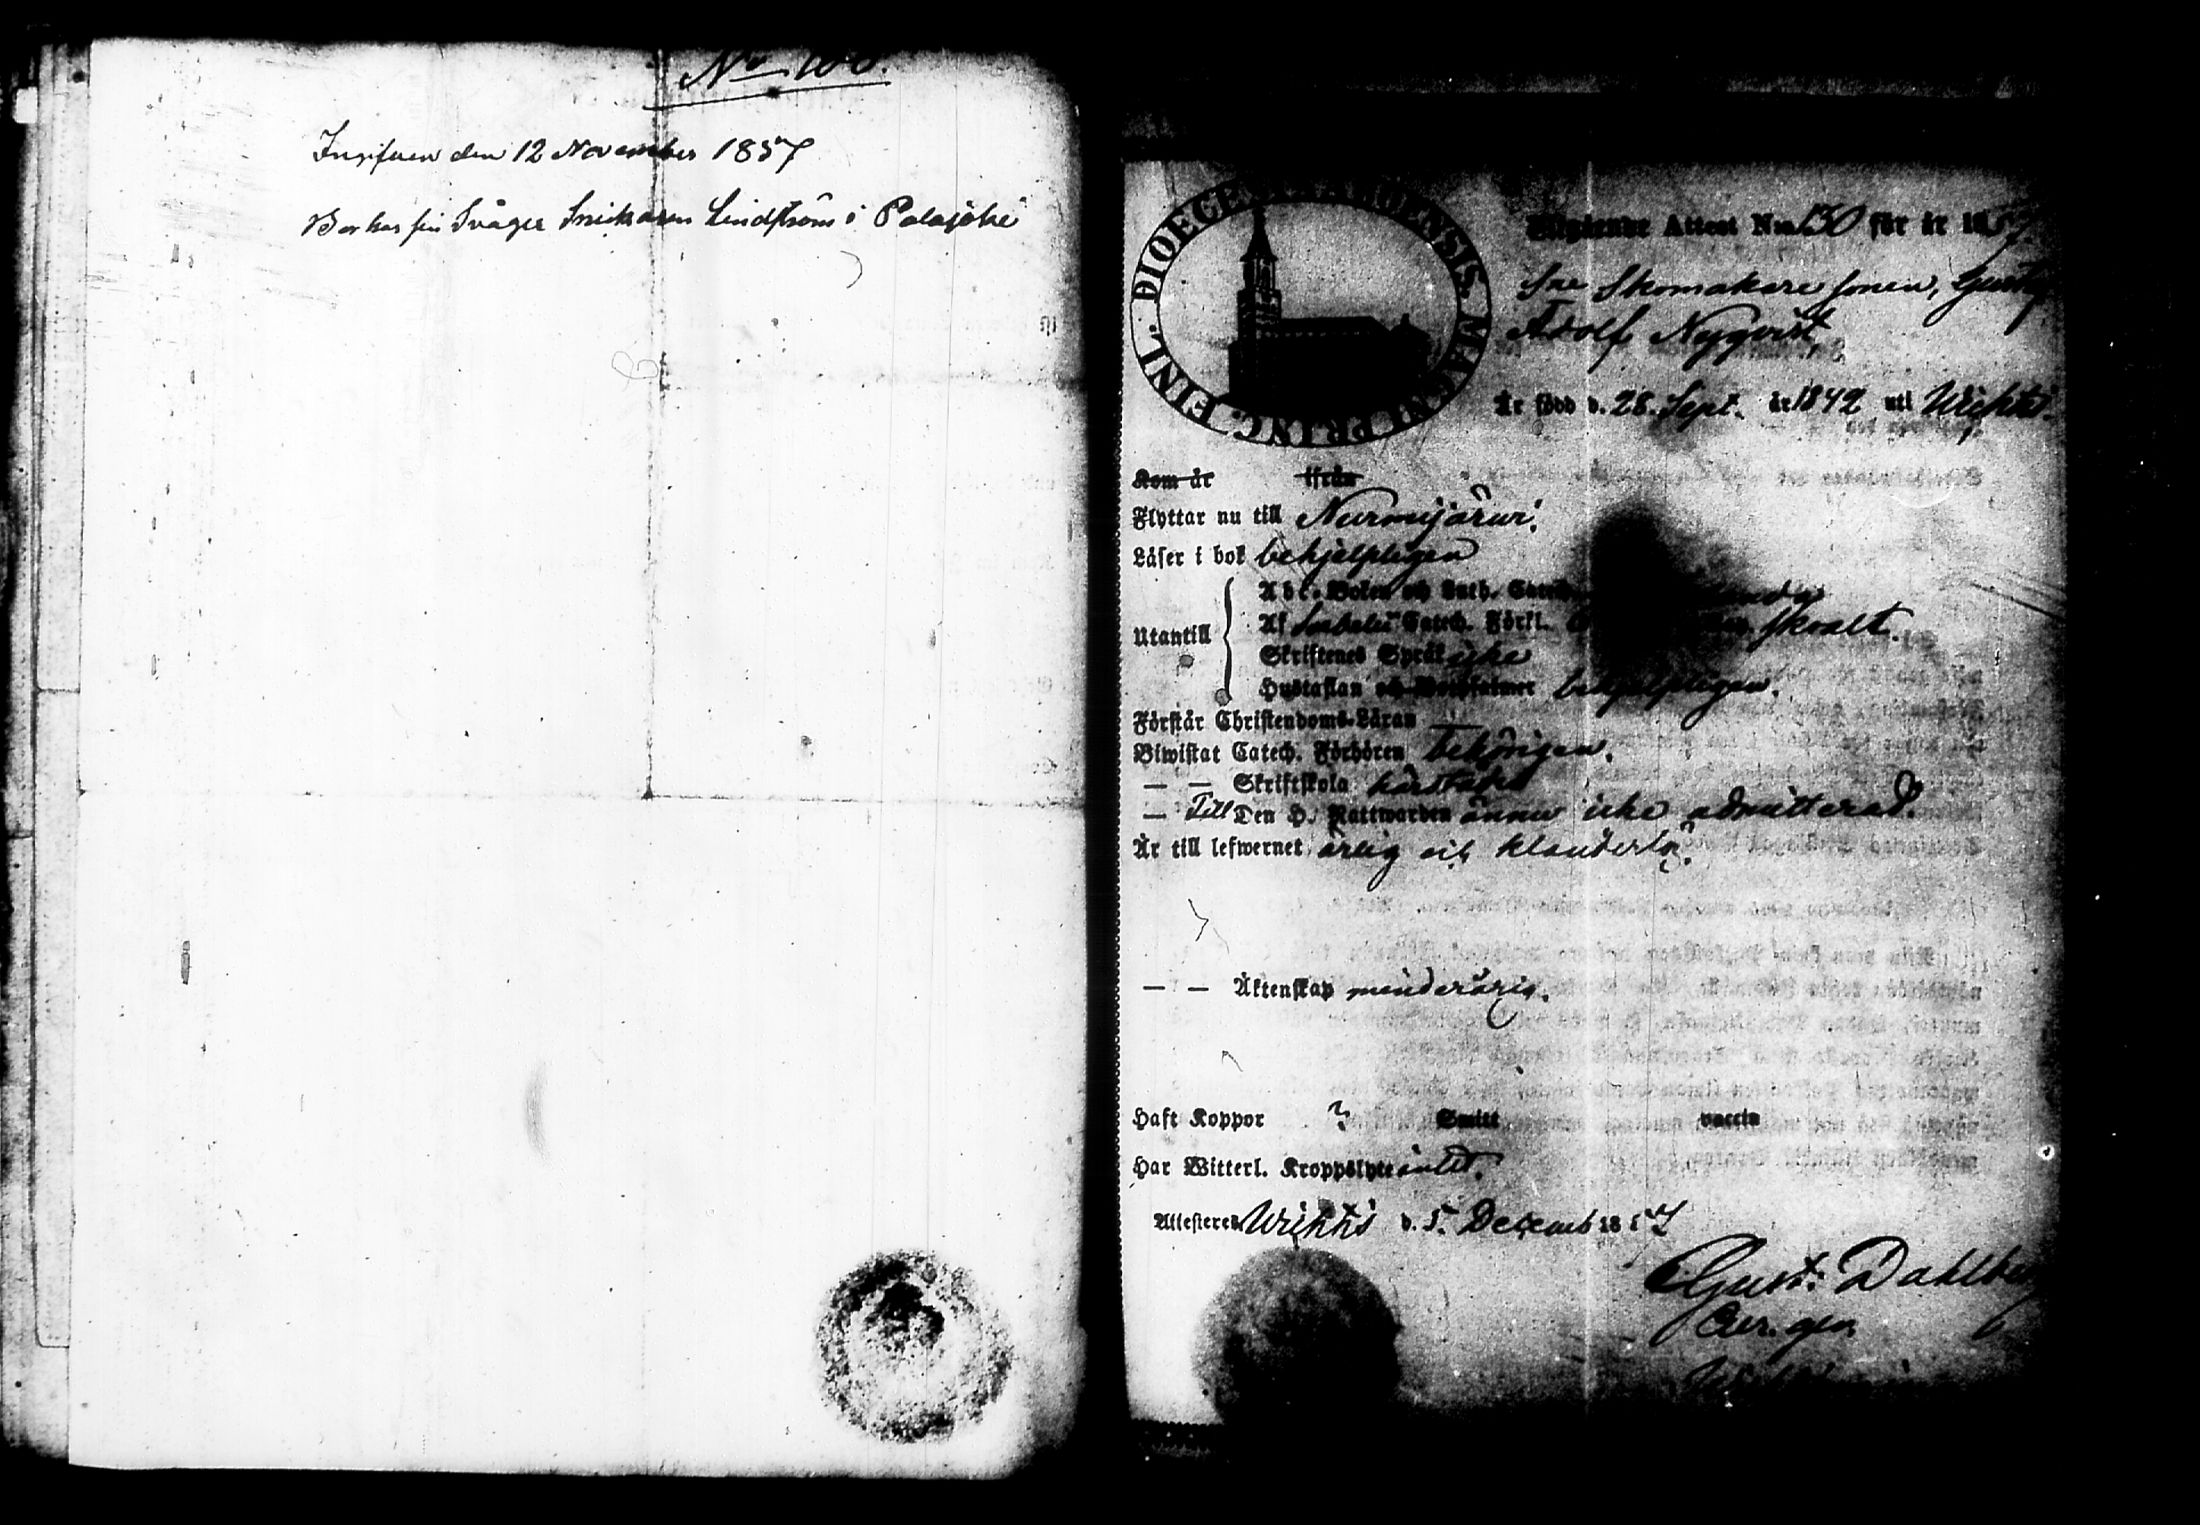 No 100.
Ingifven den 12 November 1857
Bor hos sin Svåger Snickaren Lindström i Palajoki
DIOECE ENSIS. MAGNI PRINC. FINL.
Attest N:o 130 för år 1857.
Skomakare sonen, Gustaf
Adolf Nyqvist,
Är född d. 28. Sept. år 1842 uti Wichtis.
Kom år ifrån
Flyttar nu till Nurmijärwi.
Läser i bok behjelpligen
Utantill
Abc-Boken och Luth.
Af Sebelii Catech. Förkl. svalt.
Skriftenes Språk icke
Hustaflan och behjelpligen.
Förstår Christendoms-Läran —
Biwistat Catech. Förhören behörigen.
— — Skriftskola
— Till Den H. Nattwarden ännu icke admitterad.
Är till lefwernet ärlig och klanderlös.
— — Äktenskap minderårig.
Haft Koppor ? Smitt vaccin
Har Witterl. Kroppslyte intet.
Attesteras Wichtis d. 5. Decemb 1857
Gust: Dahlberg